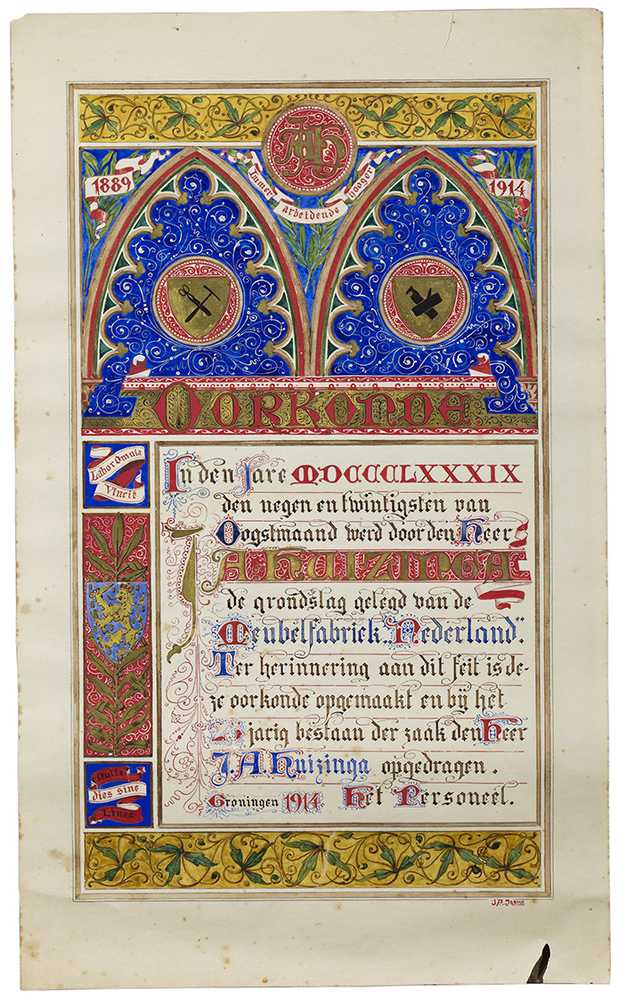 JAH
1889
Immer arbeidende hooger
1914
OORKONDE
Labor Omnia
Vincit
In den Jare MDCCCCLXXXIX
den negen en twintigsten van
Oogstmaand werd door den Heer
J.A. HUIZINGA
de grondslag gelegd van de
Meubelfabriek „Nederland”.
Ter herinnering aan dit feit is de-
ze oorkonde opgemaakt en bij het
25 jarig bestaan der zaak den Heer
J.A. Huizinga opgedragen.
Groningen 1914 Het Personeel.
Nulla
dies sine
Linea